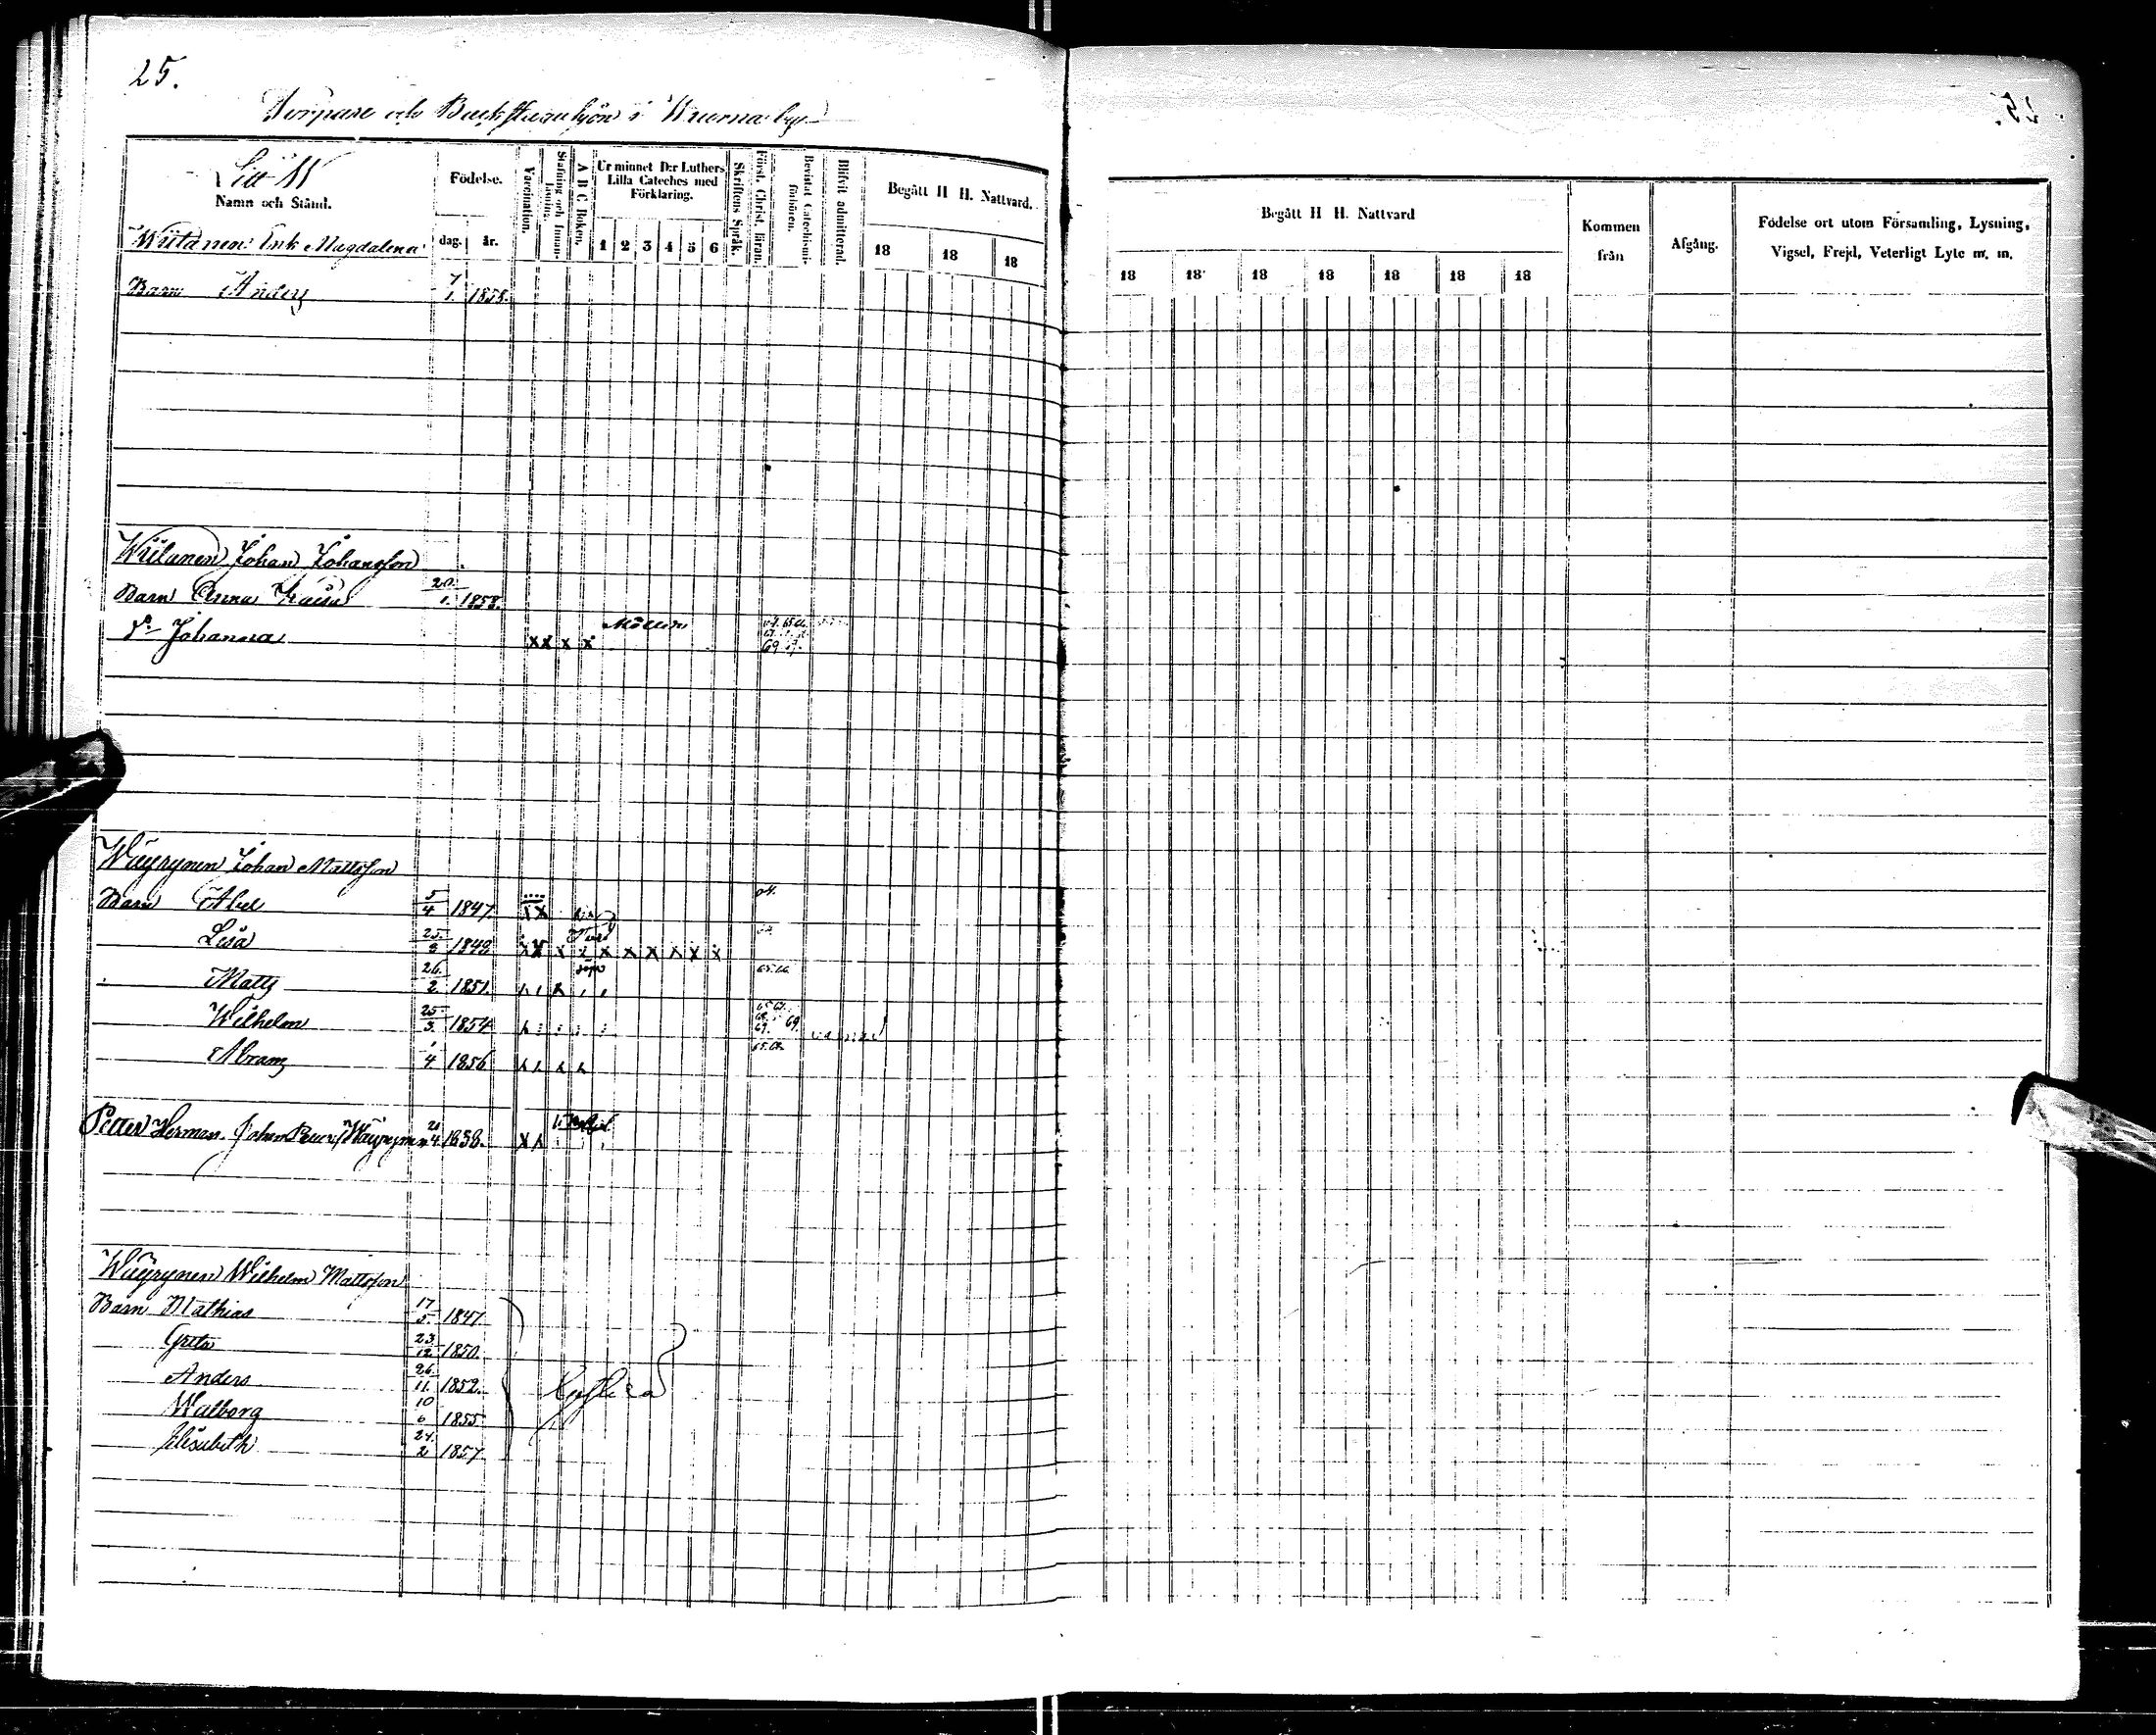 25.
25.
Torpare och Backstusuhjon i by
Litt W
Namn och Stånd.
Födelse.
dag. år.
Vaccination.
Stafning och Innanläsning.
A B C Boken.
Ur minnet D:r Luthers Lilla Cateches med Förklaring.
1 2 3 4 5 6
Skriftens Språk.
Först. Christ. läran.
Bevistat Catechismiförhören.
Blifvit admitterad.
Begått H H. Nattvard.
18 18 18
Begått H H. Nattvard
18 18 18 18 18 18 18
Kommen från
Afgång.
Födelse ort utom Församling, Lysning, Vigsel, Frejd, Veterligt Lyte m. m.
Wiitanen Enk Magdalena
Barn Anders 7/1 1858.
Wiitanen Johan Johansson
Barn Anna Kaisa 20/1. 1858.
do Johanna x x x x
Wäyrynen Johan Mattsson
Barn Abel 5/4 1847 x x
Lisa 25/8 1849 x x x x x x x x x x
Matts 26/2 1851.
Wilhelm 25/3. 1854 69.
Abram 1/4 1856
Petter Herman Johan Wäyrynen 21/4. 1858.
Wäyrynen Wilhelm Mattsson
Barn Mathias 17/5 1847
Greta 23/12 1850.
Anders 26/11. 1852.
Walborg 10/6 1855
Elisabeth 24/2 1857